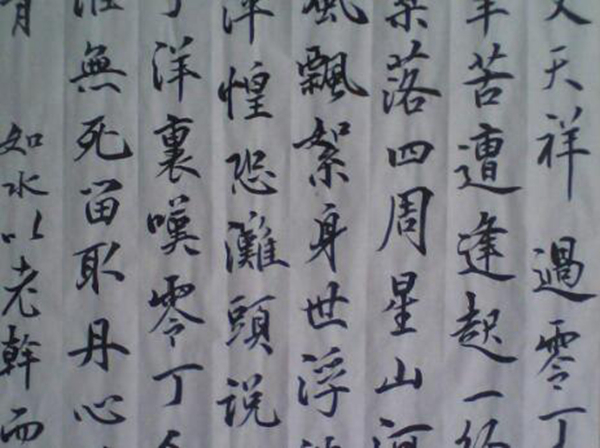 文天祥 過零丁
辛苦遭逢起一經
落四周星山河
風飄絮身世浮
萍惶恐灘頭说
丁洋裏嘆零丁
誰無死留取丹心
青 如水以老幹而